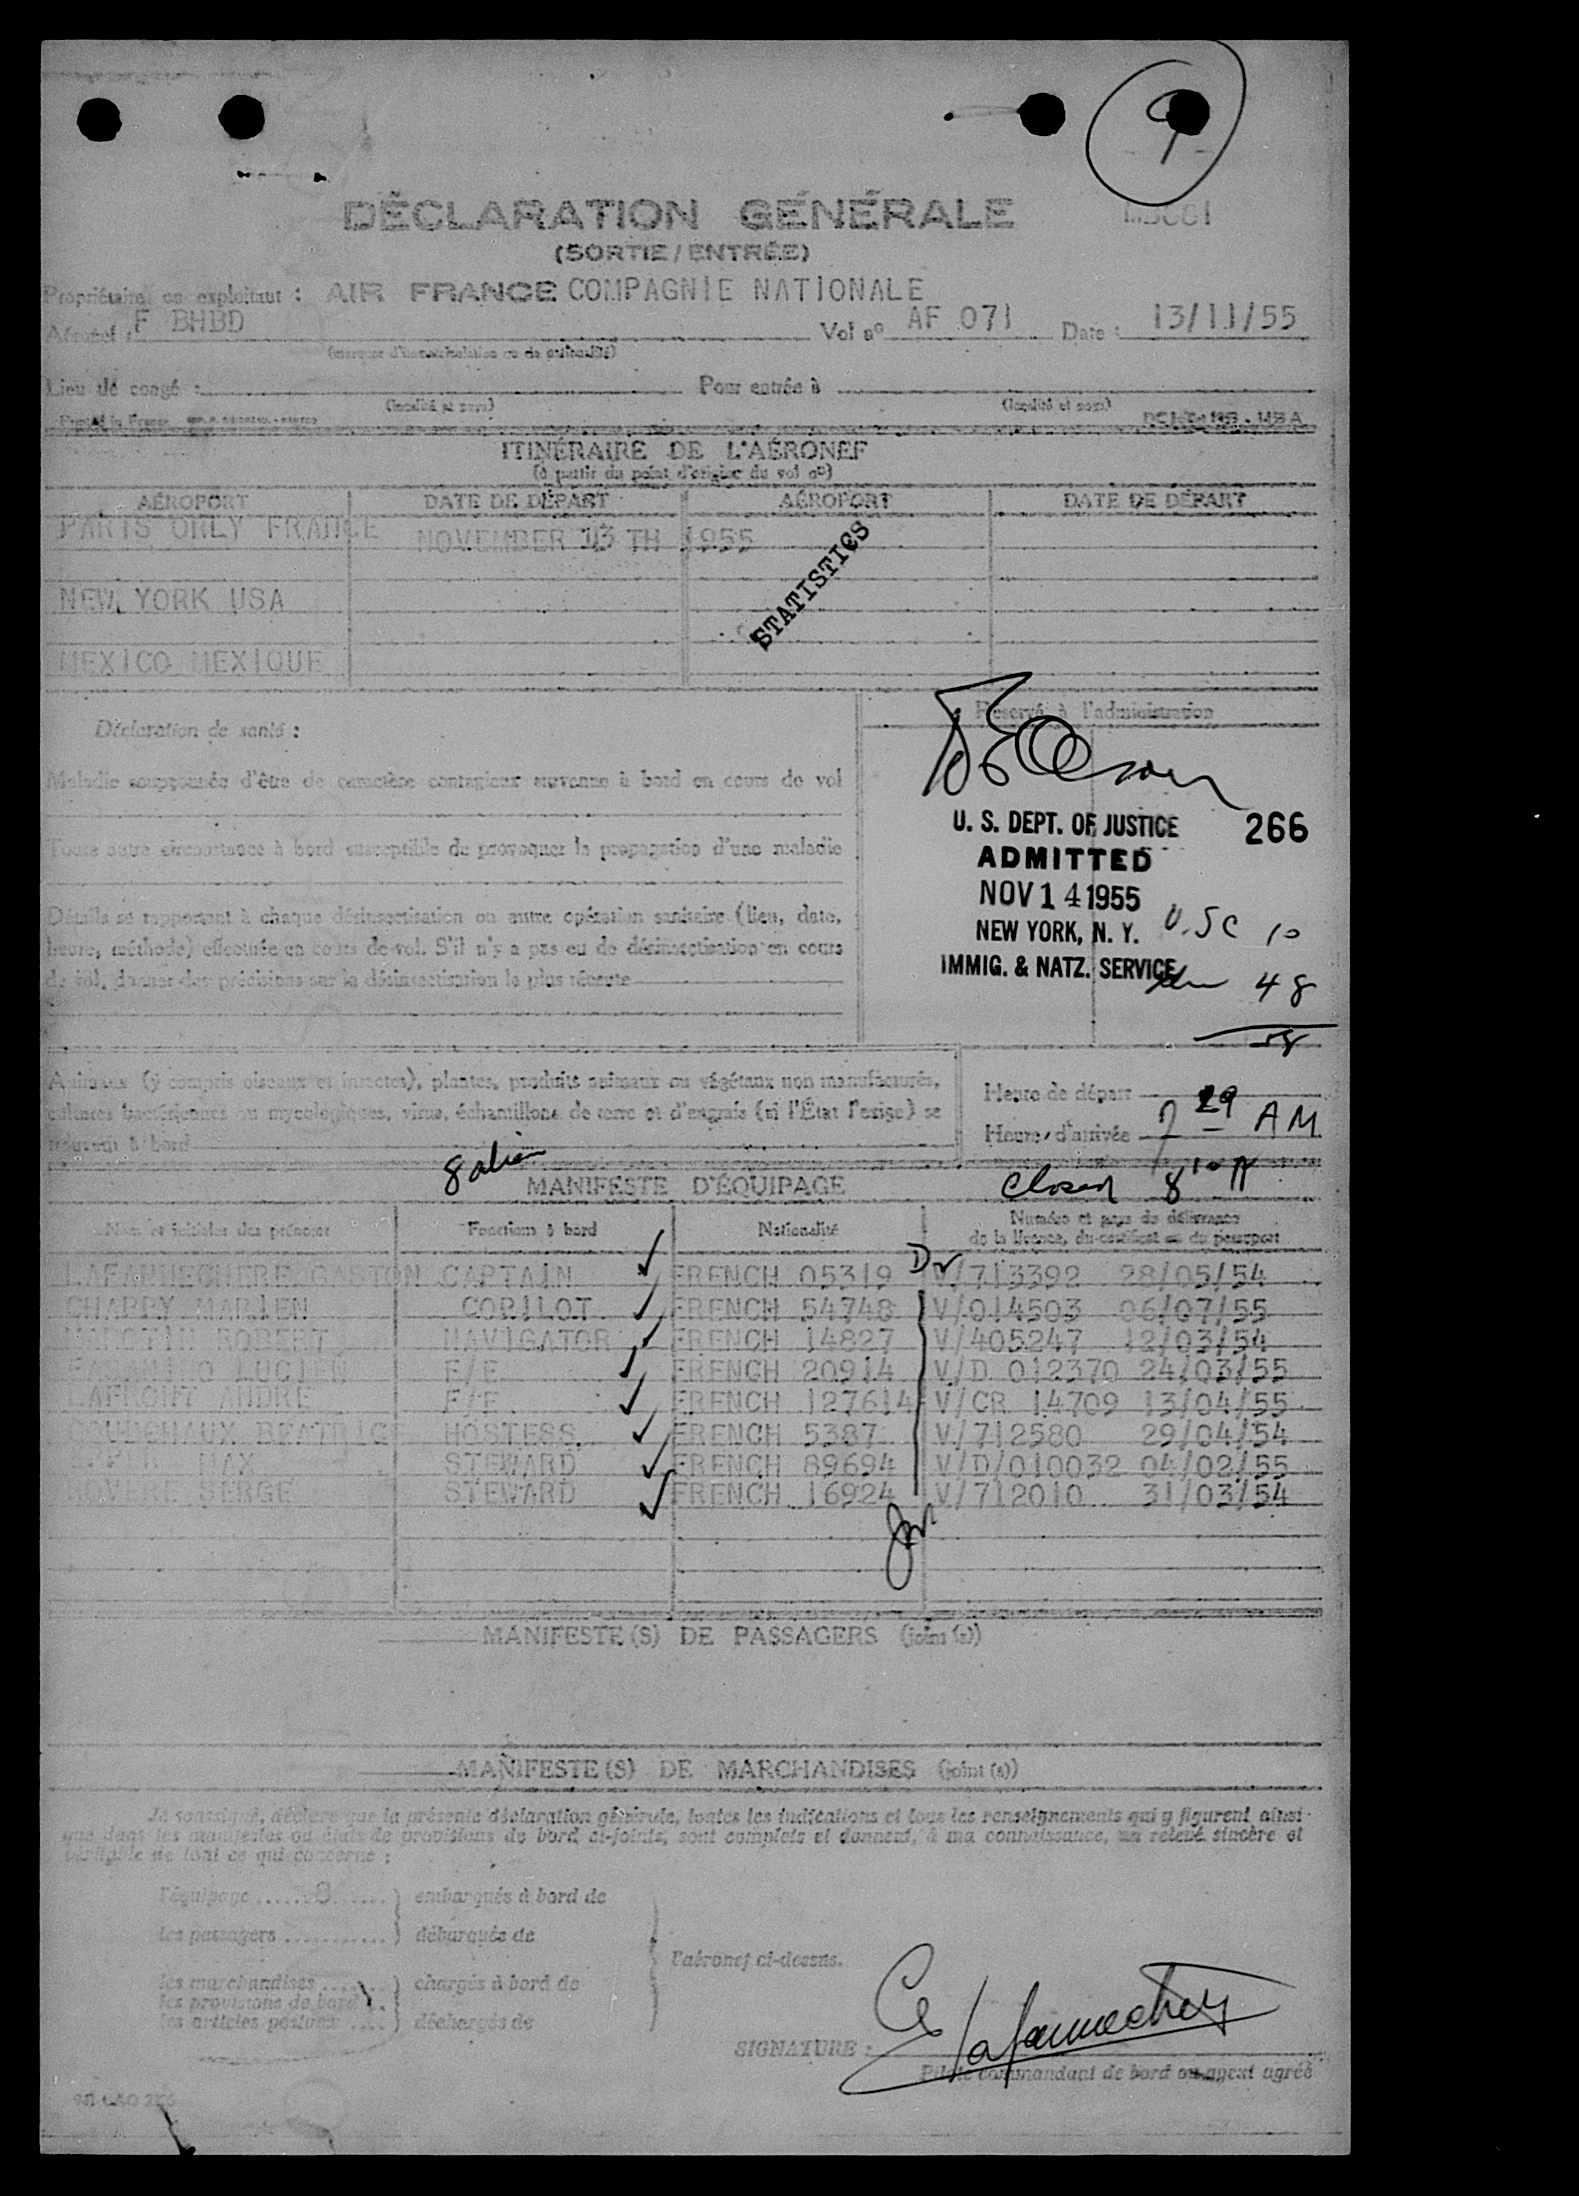 9
DÉCLARATION GÉNÉRALE
(SORTIE/ENTRÉE)
Propriétaire ou exploitant : AIR FRANCE COMPAGNIE NATIONALE
Aéronef : F BHBD Vol nº AF 071 Date : 13/11/55
(marques d'immatriculation ou de nationalité)
Lieu de congé : Pour entrée à
(localité et pays) (localité et pays)
Printed in France
ITINÉRAIRE DE L'AÉRONEF
(à partir du point d'origine du vol nº)
AÉROPORT DATE DE DÉPART AÉROPORT DATE DE DÉPART
PARIS ORLY FRANCE NOVEMBER 13 TH 1955
STATISTICS
NEW YORK USA
MEXICO MEXIQUE
Réservé à l'administration
Déclaration de santé :
Maladie soupçonnée d'être de caractère contagieux survenue à bord en cours de vol
U. S. DEPT. OF JUSTICE 266
Toute autre circonstance à bord susceptible de provoquer la propagation d'une maladie
ADMITTED
NOV 14 1955
Détails se rapportant à chaque désinsectisation ou autre opération sanitaire (lieu, date,
NEW YORK, N. Y. U.S.C 10
heure, méthode) effectuée en cours de vol. S'il n'y a pas eu de désinsectisation en cours
IMMIG. & NATZ. SERVICE
de vol, donner des précisions sur la désinsectisation la plus récente
48
58
Animaux (y compris oiseaux et insectes), plantes, produits animaux ou végétaux non manufacturés,
Heure de départ
cultures bactériennes ou mycologiques, virus, échantillons de terre et d'engrais (si l'État l'exige) se
Heure d'arrivée 7 29 AM
trouvant à bord
8 alien
closed 8 10 A
MANIFESTE D'ÉQUIPAGE
Nom et initiales des prénoms Fonctions à bord Nationalité Numéro et pays de délivrance
de la licence, du certificat ou du passeport
LAFANNECHERE GASTON CAPTAIN FRENCH 05319 V/713392 28/05/54
CHAPPY MARIEN COPILOT FRENCH 54748 V/014503 06/07/55
ROBERT NAVIGATOR FRENCH 14827 V/405247 12/03/54
LUCIEN F/E FRENCH 20914 V/D 012370 24/03/55
LAFRONT ANDRE F/E FRENCH 127614 V/CR 14709 13/04/55
GOUDCHAUX BEATRICE HOSTESS FRENCH 5387 V/712580 29/04/54
MAX STEWARD FRENCH 89694 V/D/010032 04/02/55
SERGE STEWARD FRENCH 16924 V/712010 31/03/54
MANIFESTE(S) DE PASSAGERS (joint(s))
MANIFESTE(S) DE MARCHANDISES (joint(s))
Je soussigné, déclare que la présente déclaration générale, toutes les indications et tous les renseignements qui y figurent ainsi
que dans les manifestes ou états de provisions de bord ci-joints, sont complets et donnent, à ma connaissance, un relevé sincère et
véritable de tout ce qui concerne :
l'équipage 8 embarqués à bord de
les passagers débarqués de
l'aéronef ci-dessus.
les marchandises chargés à bord de
les provisions de bord
les articles postaux déchargés de
SIGNATURE : Lafannechere
Pilote commandant de bord ou agent agréé